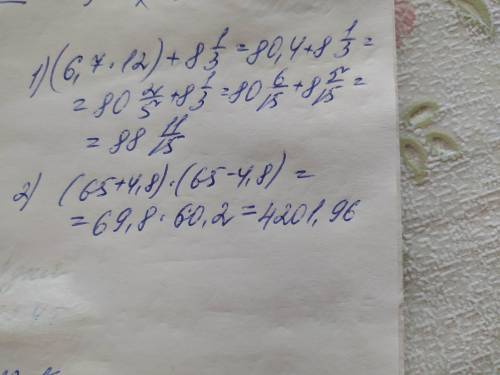 1) (6,7·12)+8 1/3 = 80,4+8 1/3 =
= 80 2/5 + 8 1/3 = 80 6/15 + 8 5/15 =
= 88 11/15
2) (65+4,8)·(65-4,8) =
= 69,8·60,2 = 4201,96